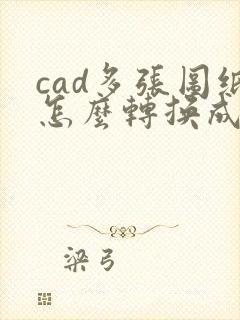 cad多張圖紙
怎麼轉換成
梁弓